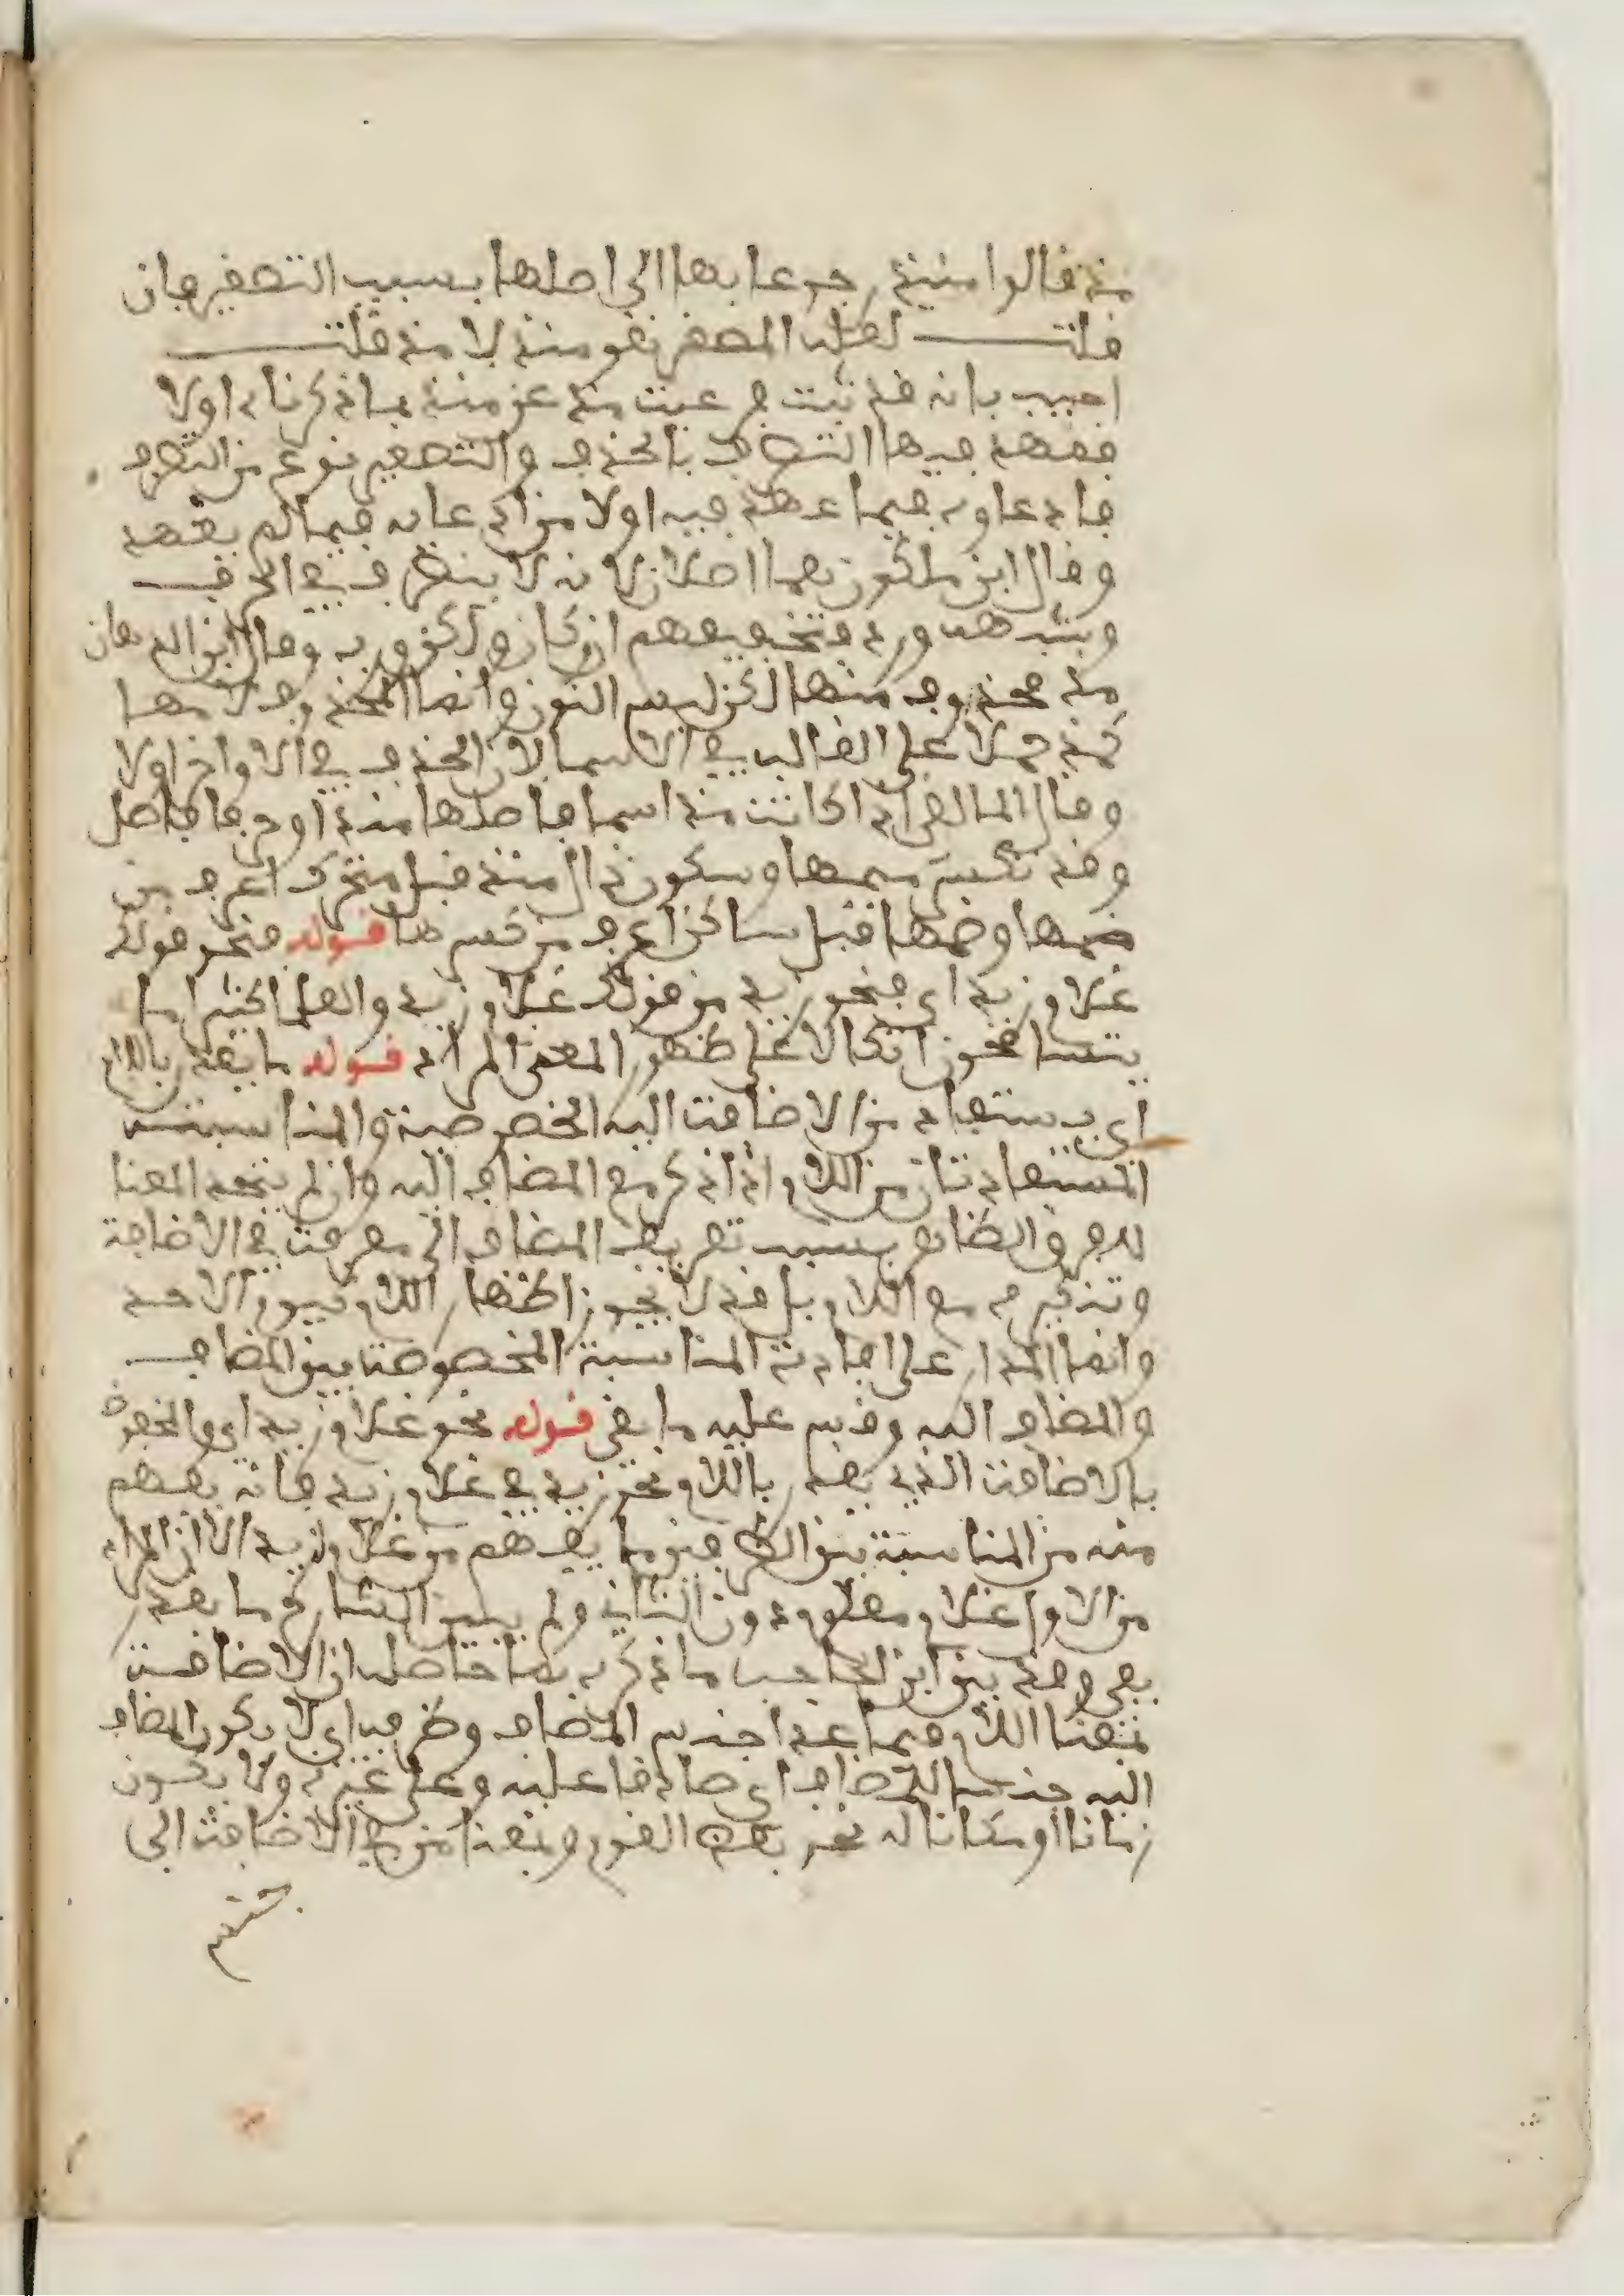 مذ قالوا منيذ رجوعا بها الى اصلها بسبب التصغير فان
قلت لعل المصغر نحو منذ لا مذ قلت
اجيب بانه قد ثبت فرعيت مذ عن منذ بما ذكرناه اولا
فعهد فيها التصرف بالحذف والتصغير نوع من التصرف
فادعاوه فيما عهد فيه اولا من ادعايه فيما لم يعهد
وقال ابن ملكون هما اصلان لانه لا يتصرف في الحرف
وشبهه ورد بتخفيفهم ان وكان ولكن ورب وقال ابن الدهان
مذ محذوف منها لكن ليس النون وانما المحذوف لامها
كمذ حملا على الغالب في الاسما لان الحذف في الاواخر اولا
وقال المالقي اذا كانت مذ اسما فاصلها منذ او حرفا فاصل
وقد تكسر ميمها وسكون ذال مذ قبل متحرك اعرف من
ضمها وضمها قبل ساكن اعرف من كسرها قوله فنحو قولك
غلام زيد اي فنحو زيد من قولك غلام زيد والعلما كثيرا ما
يتسامحون اتكالا على ظهور المعنى المراد قوله ما يقدر باللام
اي يستفاد من الاضافت اليه الخصوصية والمناسبت
المستفادتان من اللام اذا ذكر مع المضاف اليه وان لم يتحد المعنا
لاجرم ايضا بسبب تعريف المضاف الى معرفت في الاضافة
وتنكيره مع اللام بل قد لا يجوز اظهار اللام كيوم الاحد
وانما المدار على افادته المناسبة المخصوصة بين المضاف
والمضاف اليه وقس عليه ما بقى قوله نحو غلام زيد اي والمخفوض
بالاضافت الذي يقدر باللام نحو زيد في غلام زيد فانه يفهم
منه من المناسبة بين الطرفين ما يفهم من غلام لزيد الا ان المراد
من الاول غلام معلوم دون الثاني ولم يبين الشارح ما يقدر
بفي وقد بين ابن الحاجب ما ذكره بما حاصله ان الاضافت
بمعنا اللام فيما عدا جنس المضاف وظرفه اي لا يكون المضاف
اليه جنس المضاف اي صادقا عليه وعلى غيره ولا يكون
زمانا او مكانا له نحو بعض القوم وبمعنا من في الاضافت الى
جنس